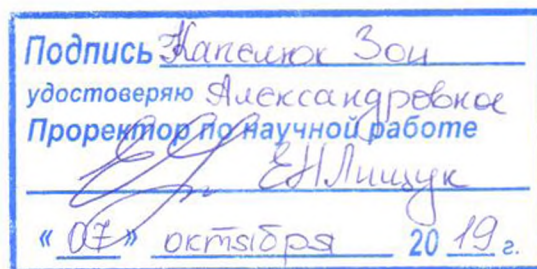 Подпись Капелюк Зои
удостоверяю Александровной
Проректор по научной работе
Е.Н.Лищук
« 07 » октября 2019 г.